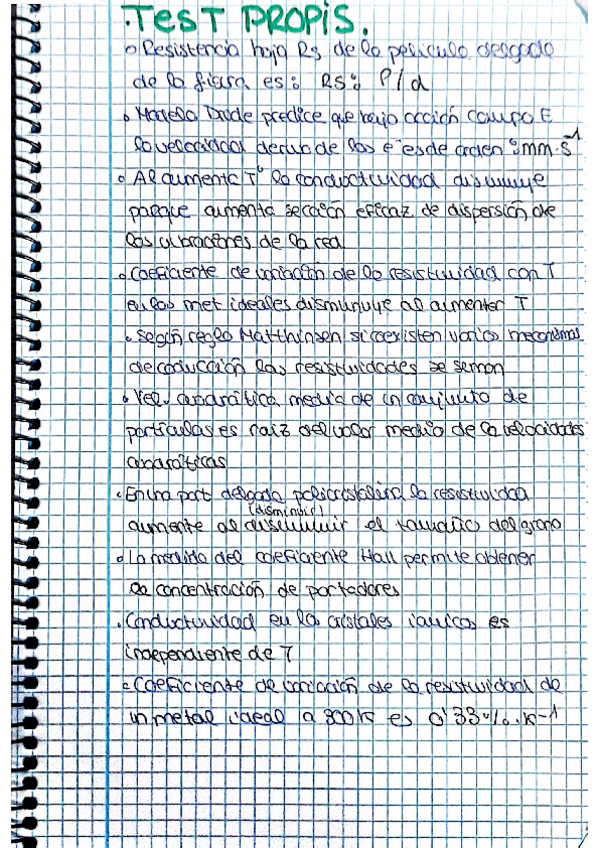 TEST PROPIS.
o Resistencia hoja Rs de la pelicula delgada
de la figura es: Rs: ρ/d
o Modelo Drude predice que bajo acción campo E
la velocidad deriva de los e⁻ es de orden: mm·s⁻¹
o Al aumenta Tª la conductividad disminuye
porque aumenta sección eficaz de dispersión de
las vibraciones de la red
o Coeficiente de variación de la resistividad con T
en los met ideales disminuye al aumentar T
• Según regla Matthinsen si coexisten varios mecanismos
de conducción las resistividades se suman
o Vel. cuadrática media de un conjunto de
particulas es raiz del valor medio de la velocidades
cuadráticas
• En una part delgada policristalina la resistividad
(disminuir)
aumente al disminuir el tamaño del grano
o La medida del coeficiente Hall permite obtener
la concentración de portadores
• Conductividad en los cristales iónicos es
independiente de T
o Coeficiente de variación de la resistividad de
un metal ideal a 300K es 0'33%·K-1